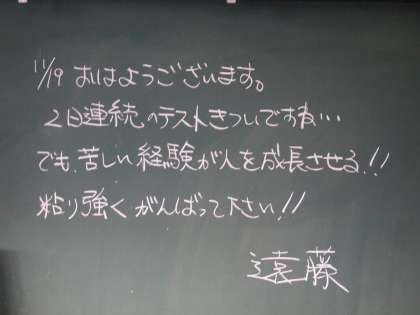 11/19 おはようございます。
2日連続のテストきついですね…
でも、苦しい経験が人を成長させる!!
粘り強くがんばって下さい!!
遠藤